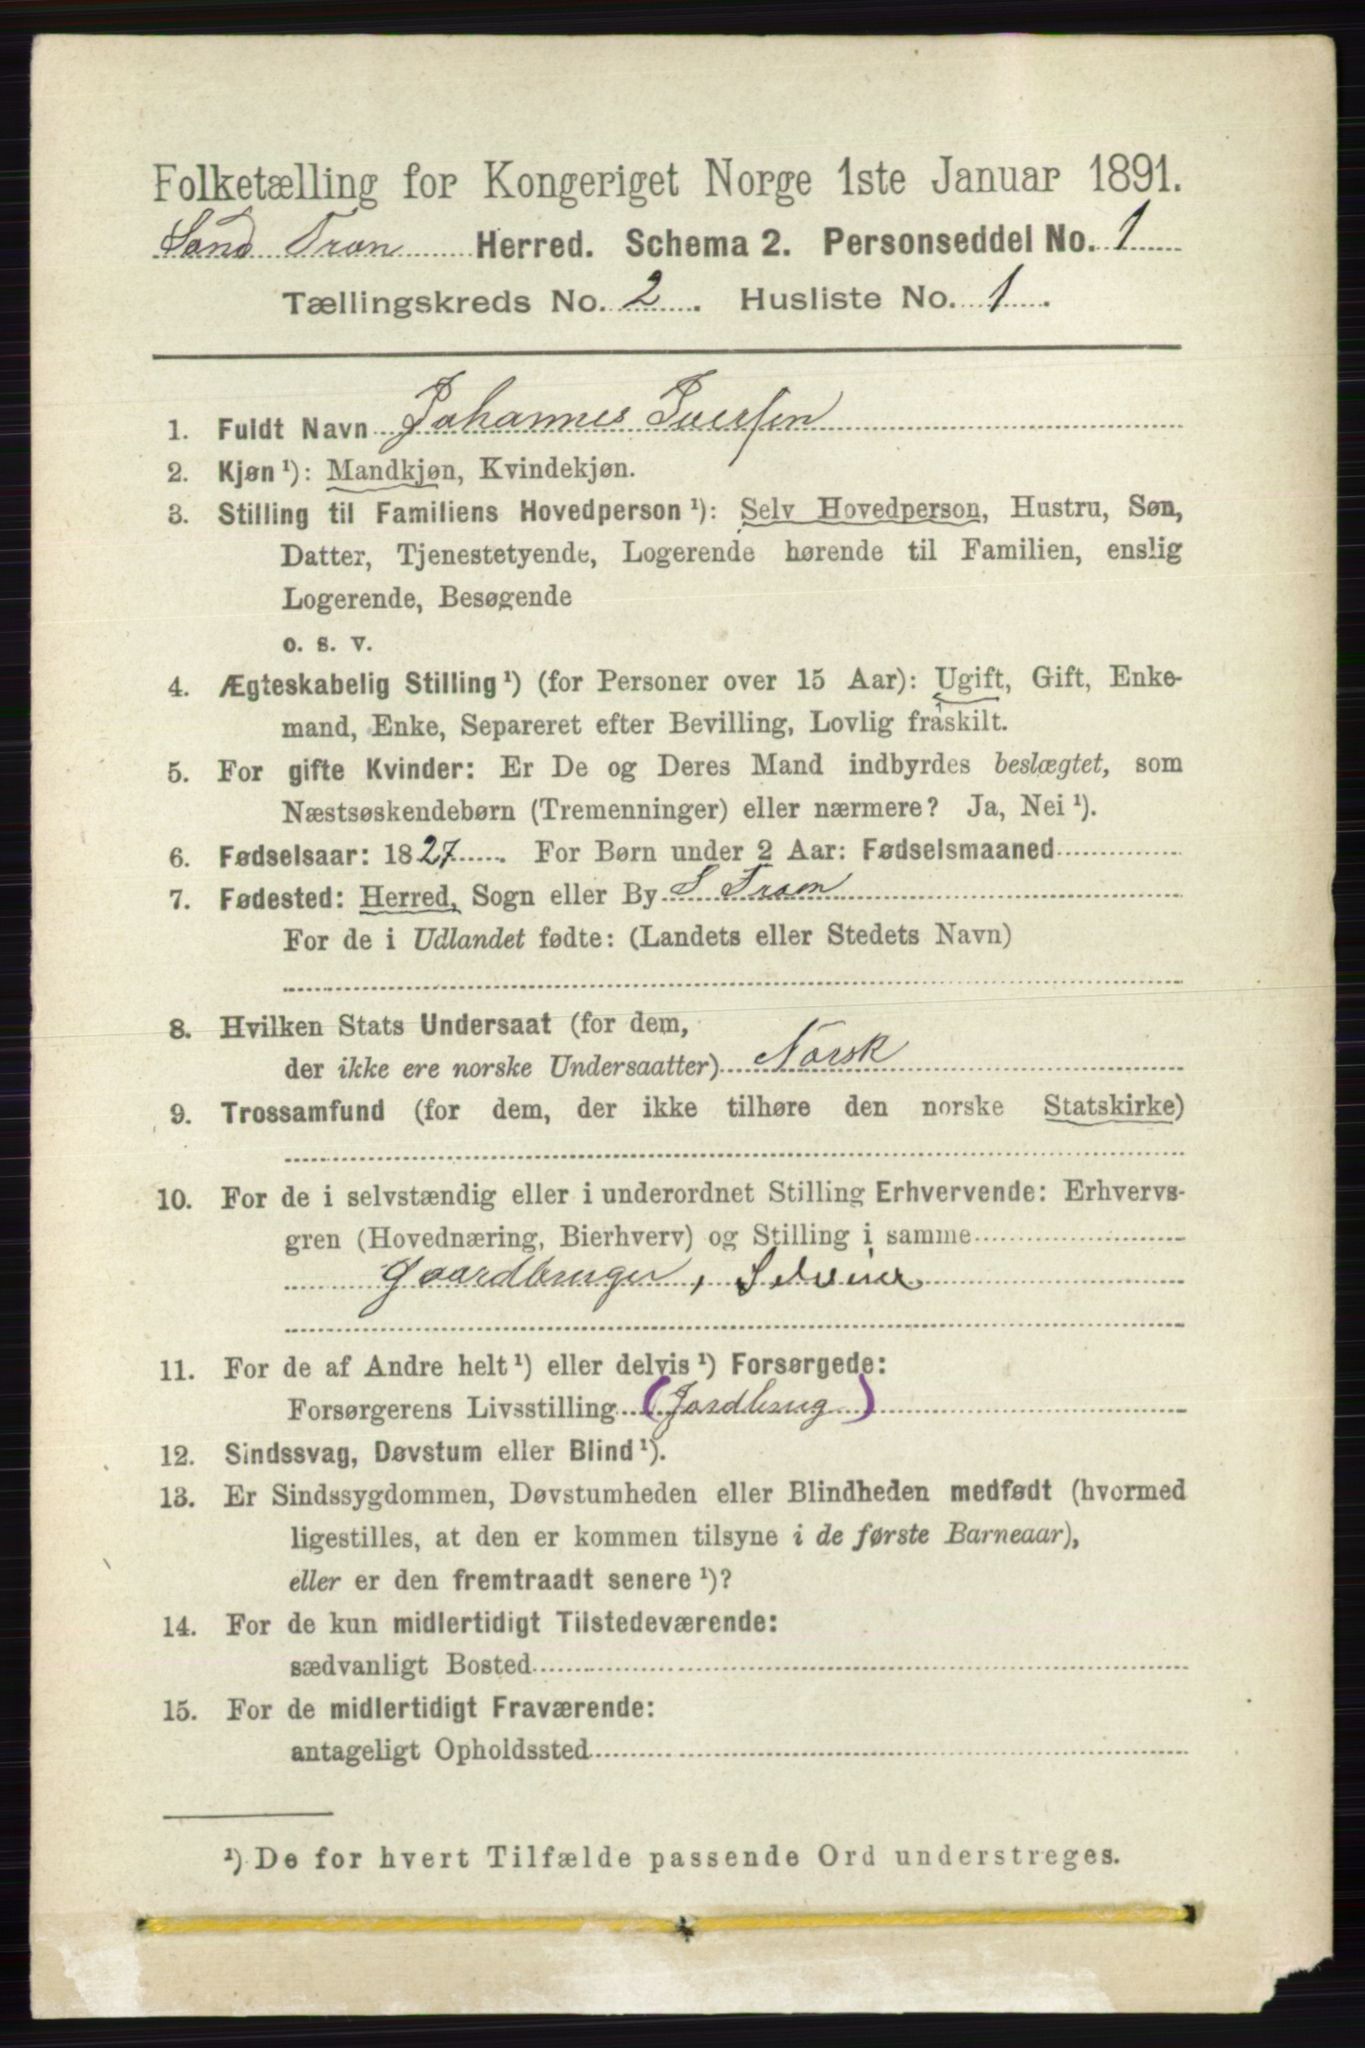 Folketælling for Kongeriget Norge 1ste Januar 1891.
Sand Tran Herred. Schema 2. Personseddel No. 1
Tællingskreds No. 2. Husliste No. 1.
1. Fuldt Navn Johannes Iversen
2. Kjøn ¹): Mandkjøn, Kvindekjøn.
3. Stilling til Familiens Hovedperson ¹): Selv Hovedperson, Hustru, Søn,
Datter, Tjenestetyende, Logerende hørende til Familien, enslig
Logerende, Besøgende
o. s. v.
4. Ægteskabelig Stilling ¹) (for Personer over 15 Aar): Ugift, Gift, Enke-
mand, Enke, Separeret efter Bevilling, Lovlig fraskilt.
5. For gifte Kvinder: Er De og Deres Mand indbyrdes beslægtet, som
Næstsøskendebørn (Tremenninger) eller nærmere? Ja, Nei ¹).
6. Fødselsaar: 1827. For Børn under 2 Aar: Fødselsmaaned
7. Fødested: Herred, Sogn eller By S Tran
For de i Udlandet fødte: (Landets eller Stedets Navn)
8. Hvilken Stats Undersaat (for dem,
der ikke ere norske Undersaatter) Norsk
9. Trossamfund (for dem, der ikke tilhøre den norske Statskirke)
10. For de i selvstændig eller i underordnet Stilling Erhvervende: Erhvervs-
gren (Hovednæring, Bierhverv) og Stilling i samme
Gaardbruger, Selveier
11. For de af Andre helt ¹) eller delvis ¹) Forsørgede:
Forsørgerens Livsstilling (Jordbrug)
12. Sindssvag, Døvstum eller Blind ¹).
13. Er Sindssygdommen, Døvstumheden eller Blindheden medfødt (hvormed
ligestilles, at den er kommen tilsyne i de første Barneaar),
eller er den fremtraadt senere ¹)?
14. For de kun midlertidigt Tilstedeværende:
sædvanligt Bosted
15. For de midlertidigt Fraværende:
antageligt Opholdssted
¹) De for hvert Tilfælde passende Ord understreges.